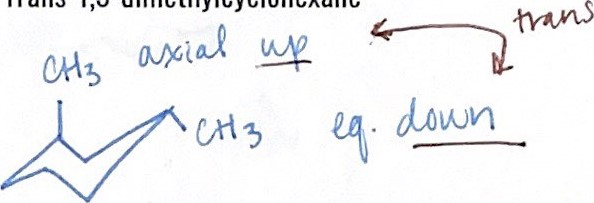 Trans 1,3-dimethylcyclohexane
trans
CH3 axial up
CH3 eq. down